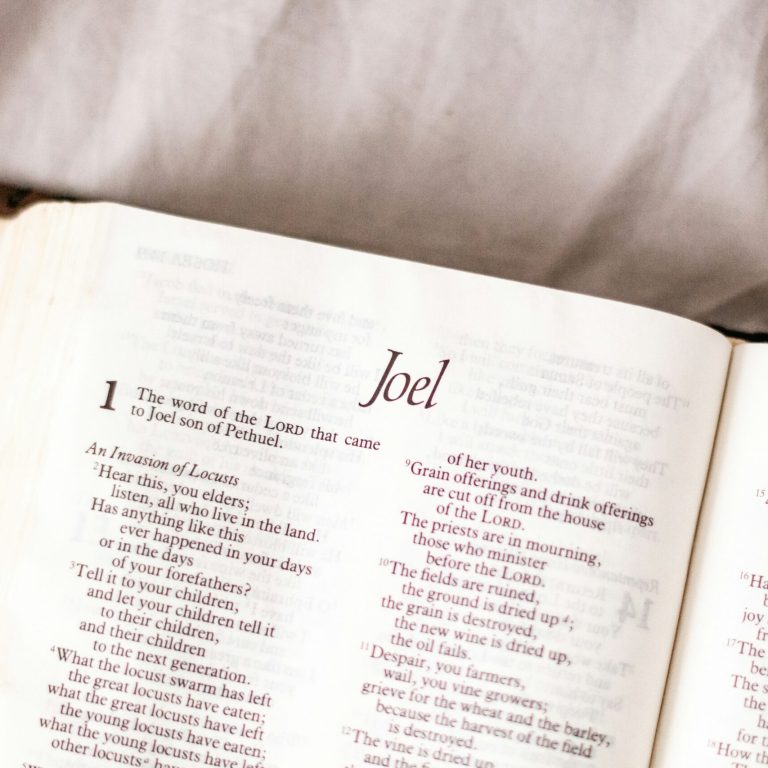 Joel
1 The word of the LORD that came
to Joel son of Pethuel.
An Invasion of Locusts
2 Hear this, you elders;
listen, all who live in the land.
Has anything like this
ever happened in your days
or in the days
of your forefathers?
3 Tell it to your children,
and let your children tell it
to their children,
and their children
to the next generation.
4 What the locust swarm has left
the great locusts have eaten;
what the great locusts have left
the young locusts have eaten;
what the young locusts have left
other locusts a
of her youth.
9 Grain offerings and drink offerings
are cut off from the house
of the LORD.
The priests are in mourning,
those who minister
before the LORD.
10 The fields are ruined,
the ground is dried up;
the grain is destroyed,
the new wine is dried up,
the oil fails.
11 Despair, you farmers,
wail, you vine growers;
grieve for the wheat and the barley,
because the harvest of the field
is destroyed.
12 The vine is dried up
and the
15
16 Ha
b
joy
fr
17 The
be
The s
the
ha
for t
18 How th